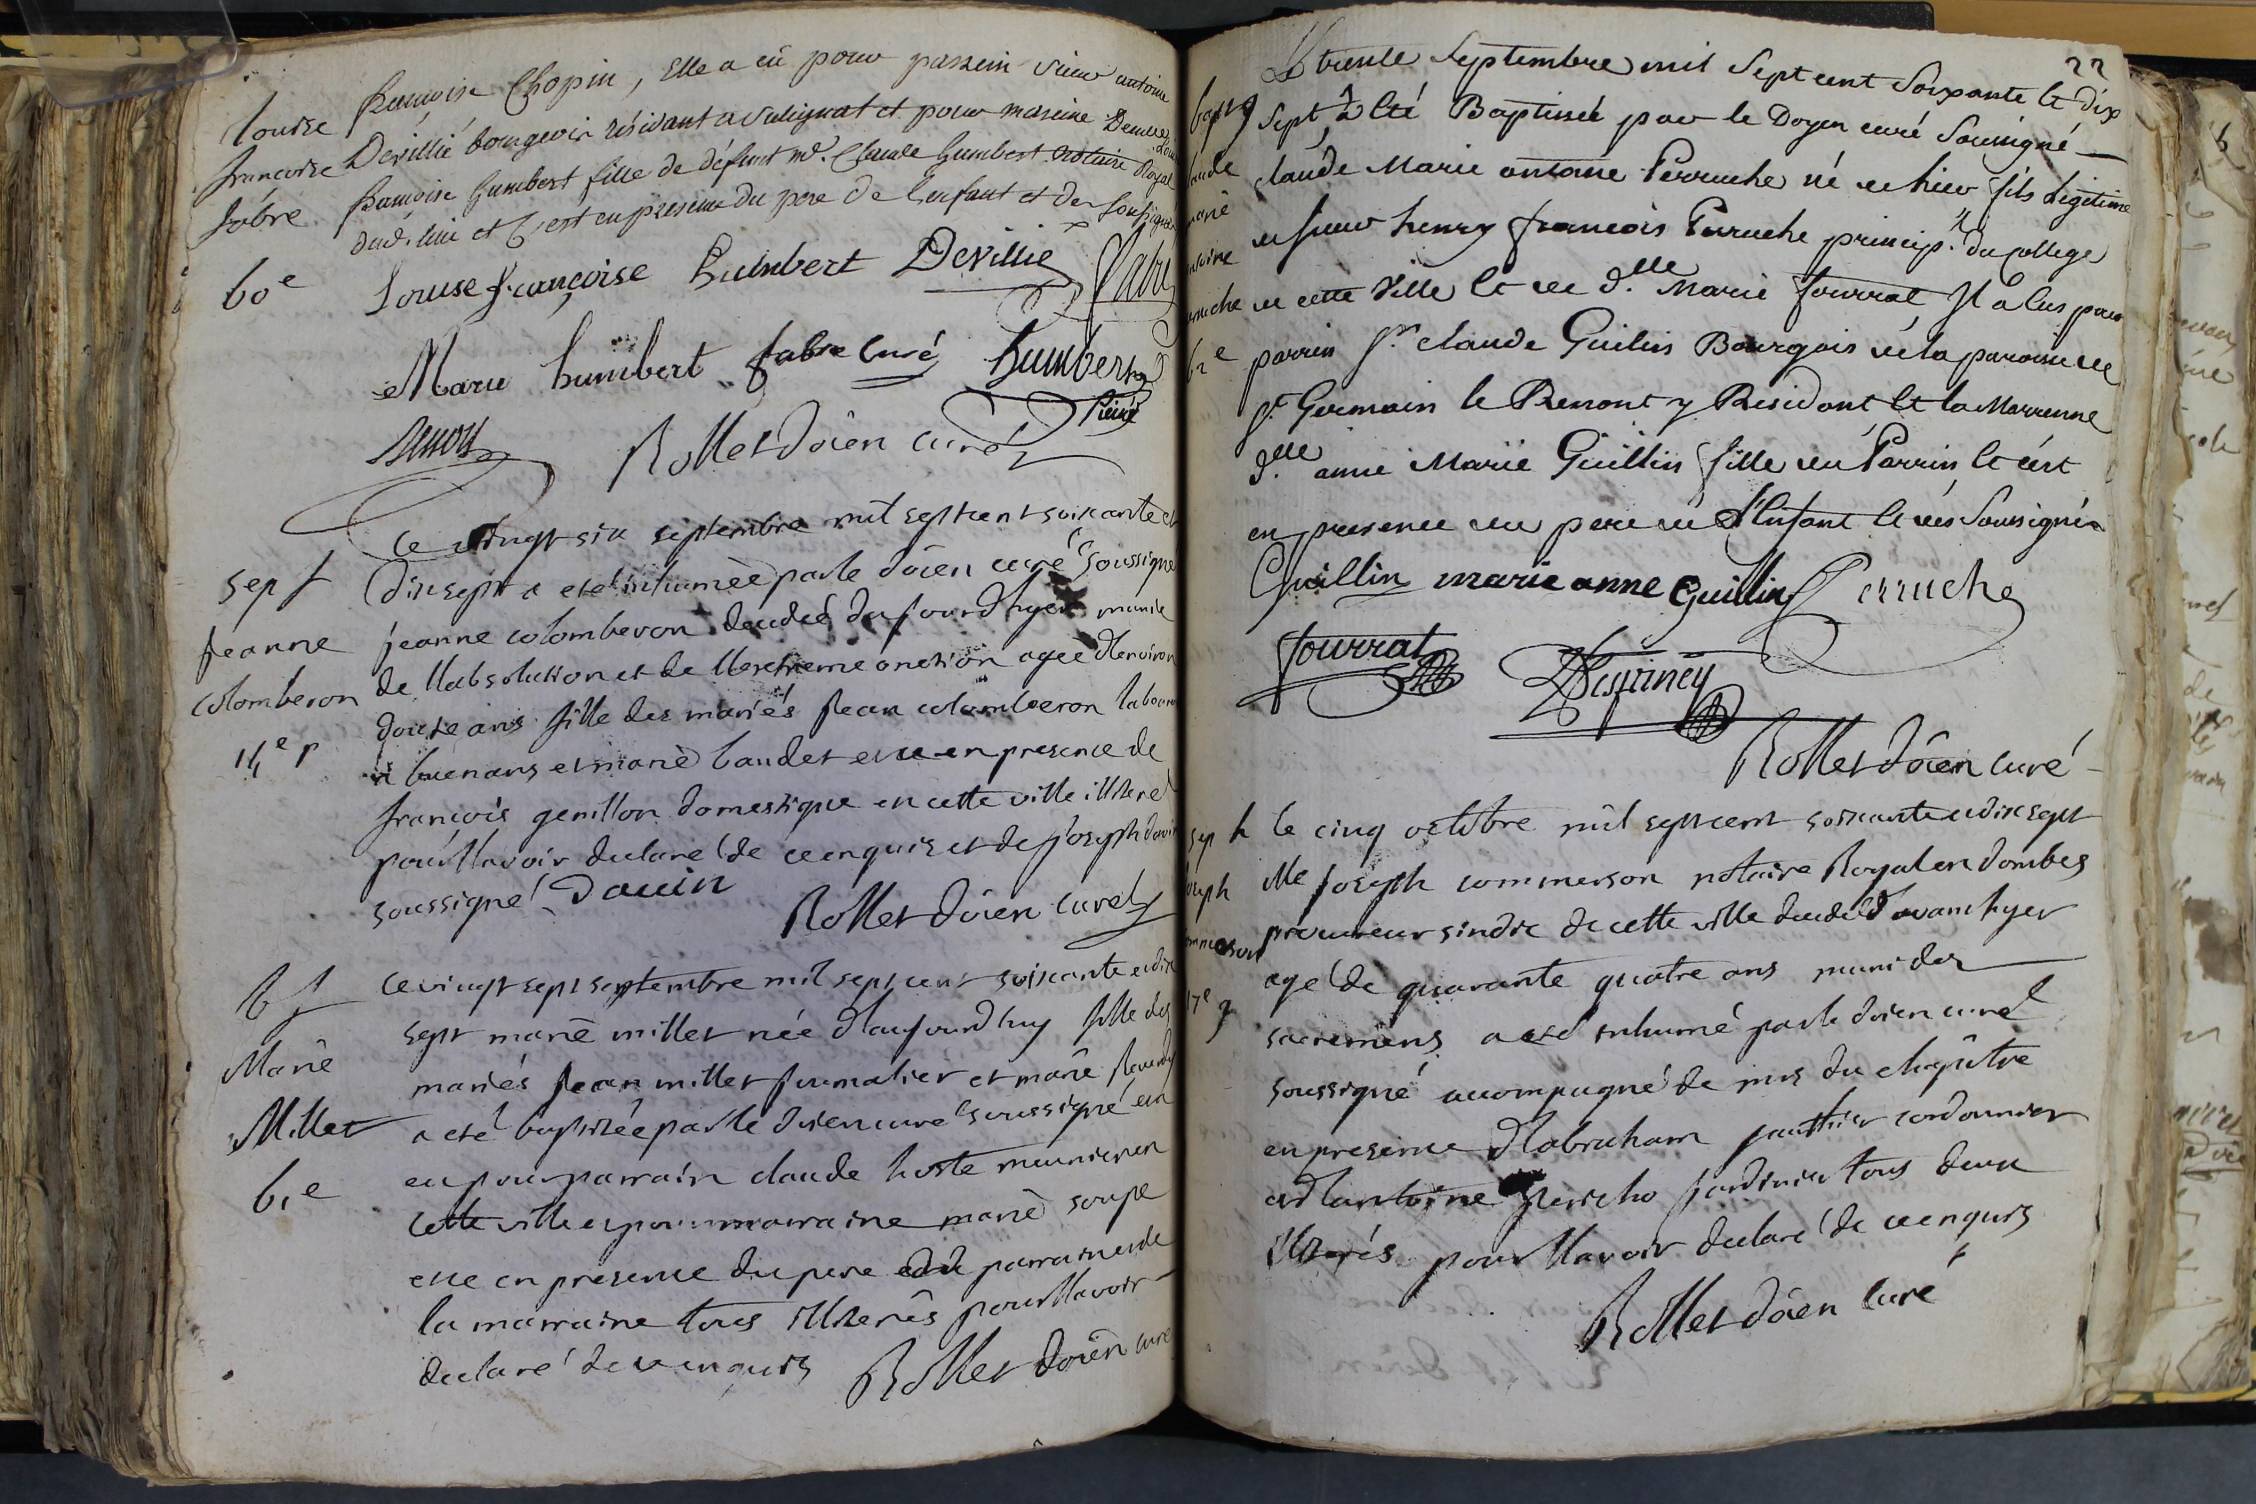 louise
francoise
fabre
60e
francoise Chopin, Elle a eü pour parrein sieur antoine
Devillié bourgeois résidant a Sulignat et pour mareine Demlle Louise
francoise humbert fille de défunt mr. Claude humbert Notaire Royal
dud. lieu et c'est en presence du pere de l'enfant et des soussignés
Louise françoise humbert Devillié fabre
Marie humbert fabre curé humbert
Rollet doïen curé
sep f
jeanne
colomberon
Ce vingt six septembre mil sept cent soixante et
dix sept a eté inhumèe par le doïen curé soussigné
jeanne colomberon decedeé du jourd'hyer munie
de l'labsolution et de l'lextreme onction agée d'lenviron
douze ans fille des mariés jean colomberon laboureur
à buenans et mariè baudet et ce en presence de
françois genillon domestique en cette ville illiteré
pour l'lavoir declaré de ce enquis et de joseph dauin
soussigné Dauin
Rollet doïen curé
b f
Marie
Millet
61e
Ce vingt sept septembre mil sept cent soixante et dix
sept mariè millet née d'laujourdhuy fille des
mariés jean millet journalier et marie
a eté baptisée par le doien curé soussigné a eu
eu pour parrain claude hoste meunier en
cette ville et pour marraine mariè soupe
et ce en presence du pere et du parrain et de
la marraine tous illiterés pour l'lavoir
declaré de ce enquis Rollet doïen curé
22
bapt g
claude
marie
antoine
perruche
62e
Le trente Septembre mil Sept cent Soixante et dix
Sept à Eté Baptiséé par le Doyen curé Soussigné
claude Marie antoine Perruche né de hier fils Légitime
de sieur henry françois Perruche princip.al du College
de cette Ville et de d.lle Marie fourrat Il a Eus pour
parrin Sr. claude Guillin Bourgois dé la paroisse de
St. Germain le Renont y Residant et la Marrenne
d.lle anne Marié Guillin fille du Parrin et c'ést
en presence du pere dé L'Enfant et dés Soussignés
Guillin marie anne Guillin Perruche
fourrat Despiney
Rollet doïen curé
sep h
joseph
commerson
17e g
le cinq octobre mil sept cent soixante et dix sept
Me joseph commerson notaire Royal en dombes
procureur sindic de cette ville decedé d'avanthyer
agé de quarante quatre ans muni des
sacremens a eté inhumé par le doïen curé
soussigné accompagné de mrs du chapitre
en presence d'labraham gauthier cordonnier
et d'lantoine jericho jardinier tous deux
illiterés pour l'lavoir declaré de ce enquis
Rollet doïen curé